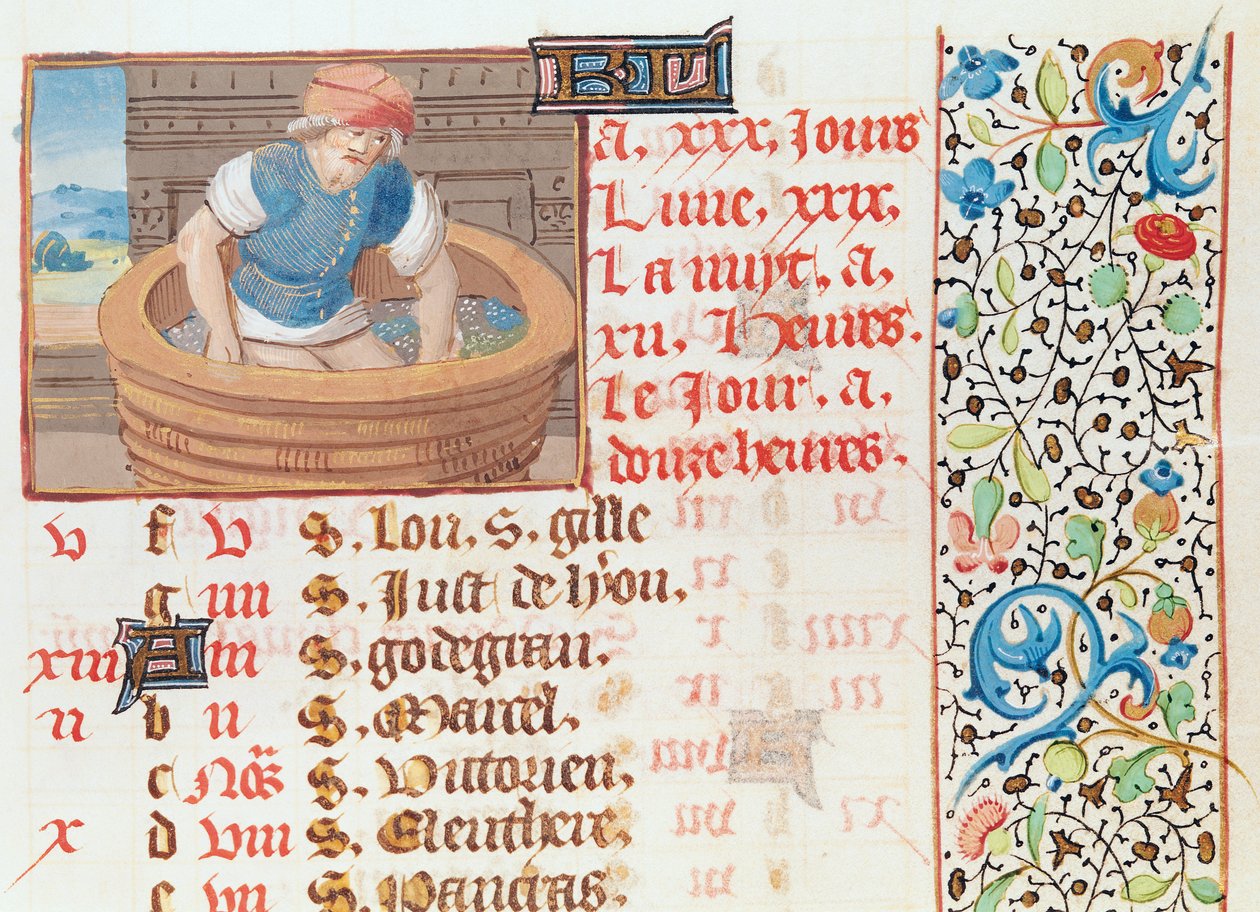 KL
a. xxx. Jours
Lune. xxix.
La nuyt. a.
xii. heures.
Le Jour. a.
douze heures.
v f v S. Lou. s. gille
g iiii S. Just de lyon.
xiii A iii S. godegran.
ii b ii S. Marcel.
c Nōs S. Victorien.
x d viii S. Eleuthere.
e vii S. Pancras.